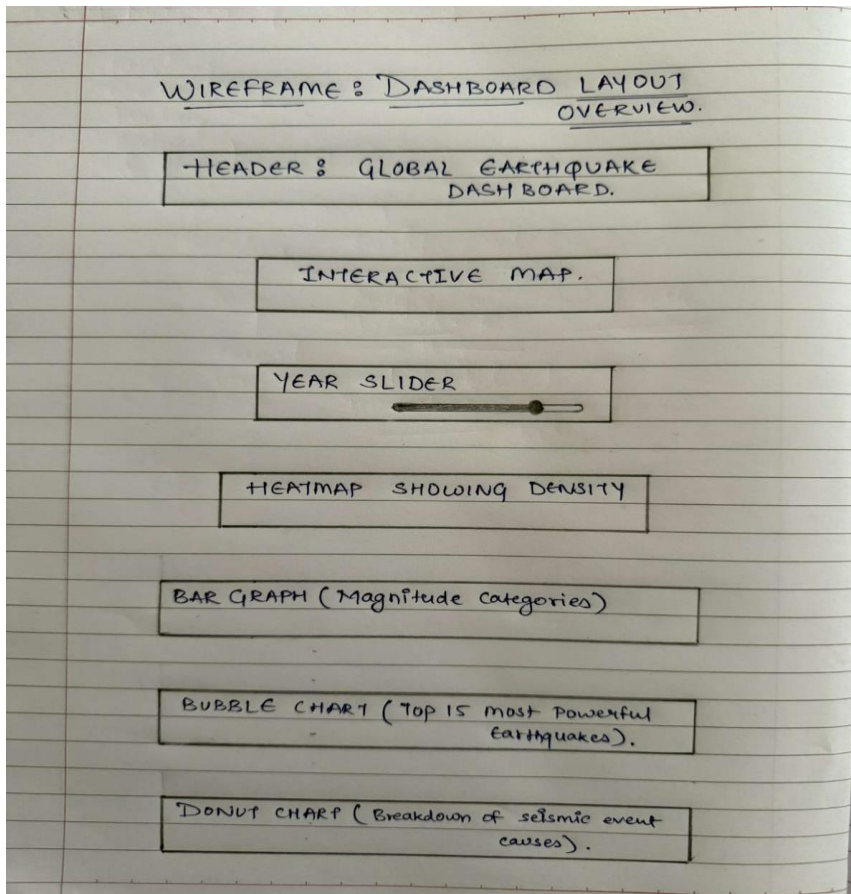 WIREFRAME : DASHBOARD LAYOUT
OVERVIEW.
HEADER : GLOBAL EARTHQUAKE
DASHBOARD.
INTERACTIVE MAP.
YEAR SLIDER
HEATMAP SHOWING DENSITY
BAR GRAPH (Magnitude Categories)
BUBBLE CHART (Top 15 most Powerful
Earthquakes).
DONUT CHART (Breakdown of seismic event
causes).